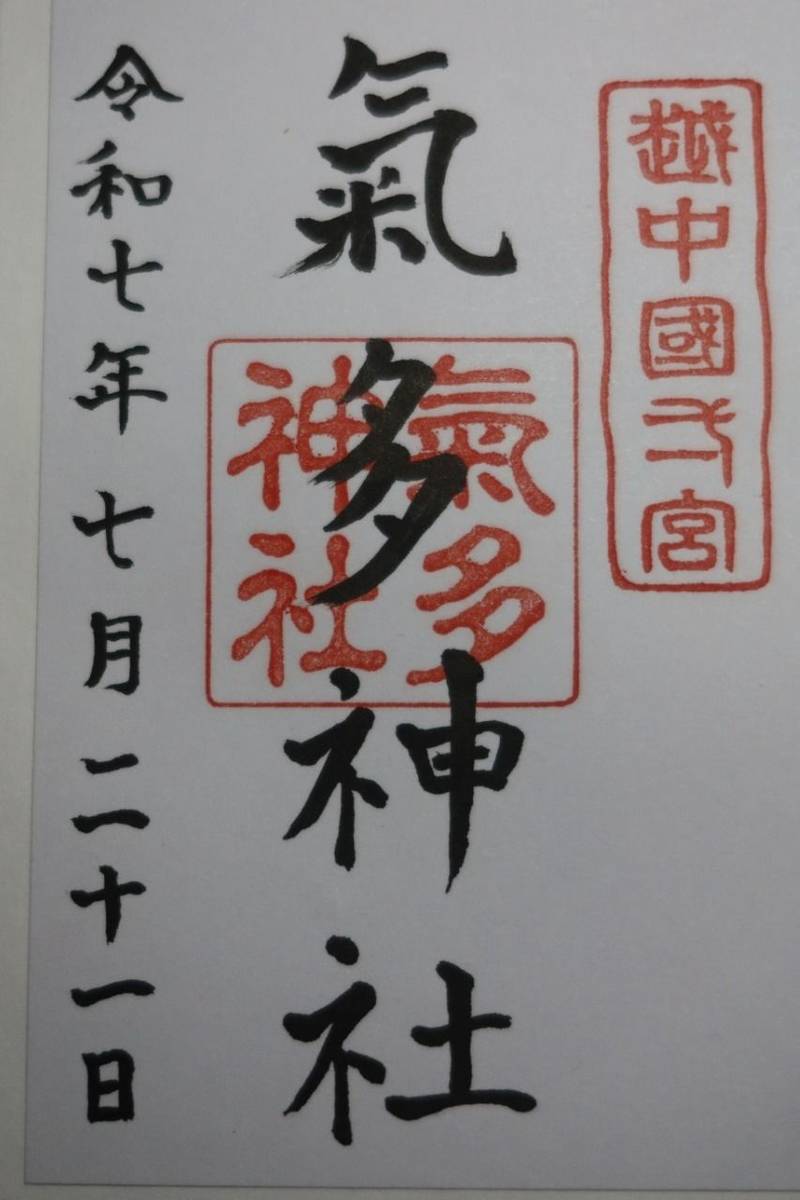 越中國弌宮
氣多神社
氣多
神社
令和七年七月二十一日